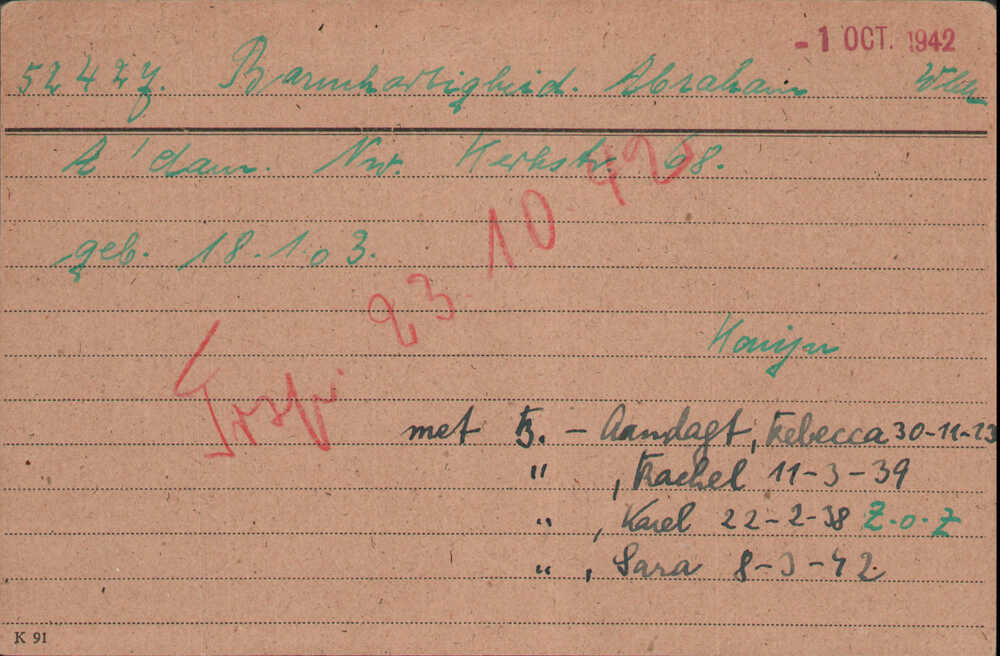 - 1 OCT. 1942
52427. Barmhartigheid. Abraham
A'dam. Nw. Kerkstr. 68.
geb. 18.1.03.
Trsp. 23. 10. 42
Konijn
met B. - Aandagt, Rebecca 30-11-13
" , Rachel 11-3-39
" , Karel 22-2-38 Z.o.Z
" , Sara 8-3-42
K 91